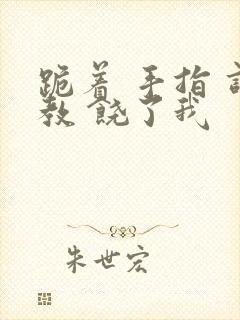 跪着 手指 调
教 饶了我
朱世宏